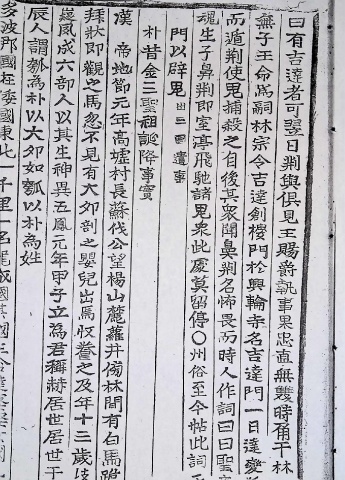 曰有吉達者可翌日荊與俱見王賜爵執事果忠直無雙時角干林
無子王命爲嗣林宗令吉達創樓門於興輪寺名吉達門一日達變
而遁荊使鬼捕殺之自後其衆聞鼻荊名怖畏而時人作詞曰曰聖
魂生子鼻荊郎室渟飛馳諸鬼衆此處莫留停○州俗至今帖此詞
門以辟鬼出三国遺事
朴昔金三聖祖誕降事實
漢 帝地節元年高墟村長蘇伐公望楊山麓蘿井傍林間有白馬跪
拜狀即觀之馬忽不見有大卵剖之嬰兒出焉收養之及年十三歲
嶷夙成六部人以其生神異五鳳元年甲子立爲君稱赫居世居世干
辰人謂瓠爲朴以大卵如瓠以朴爲姓
多波那國在倭國東北一千里一名龍城國其國王含達婆